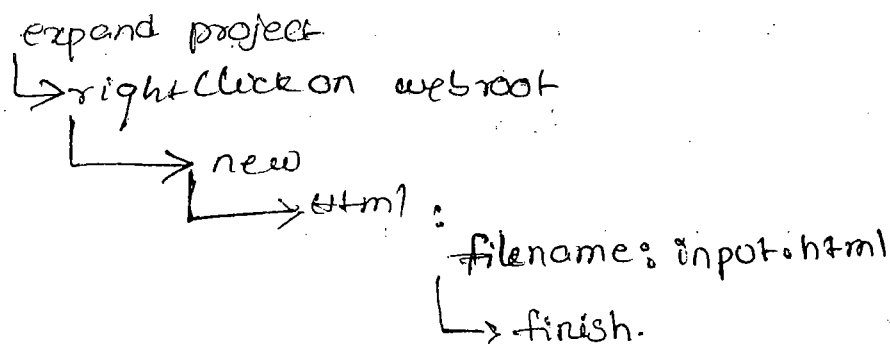 expand project
rightClick on webroot
new
Html :
filename: input.html
finish.